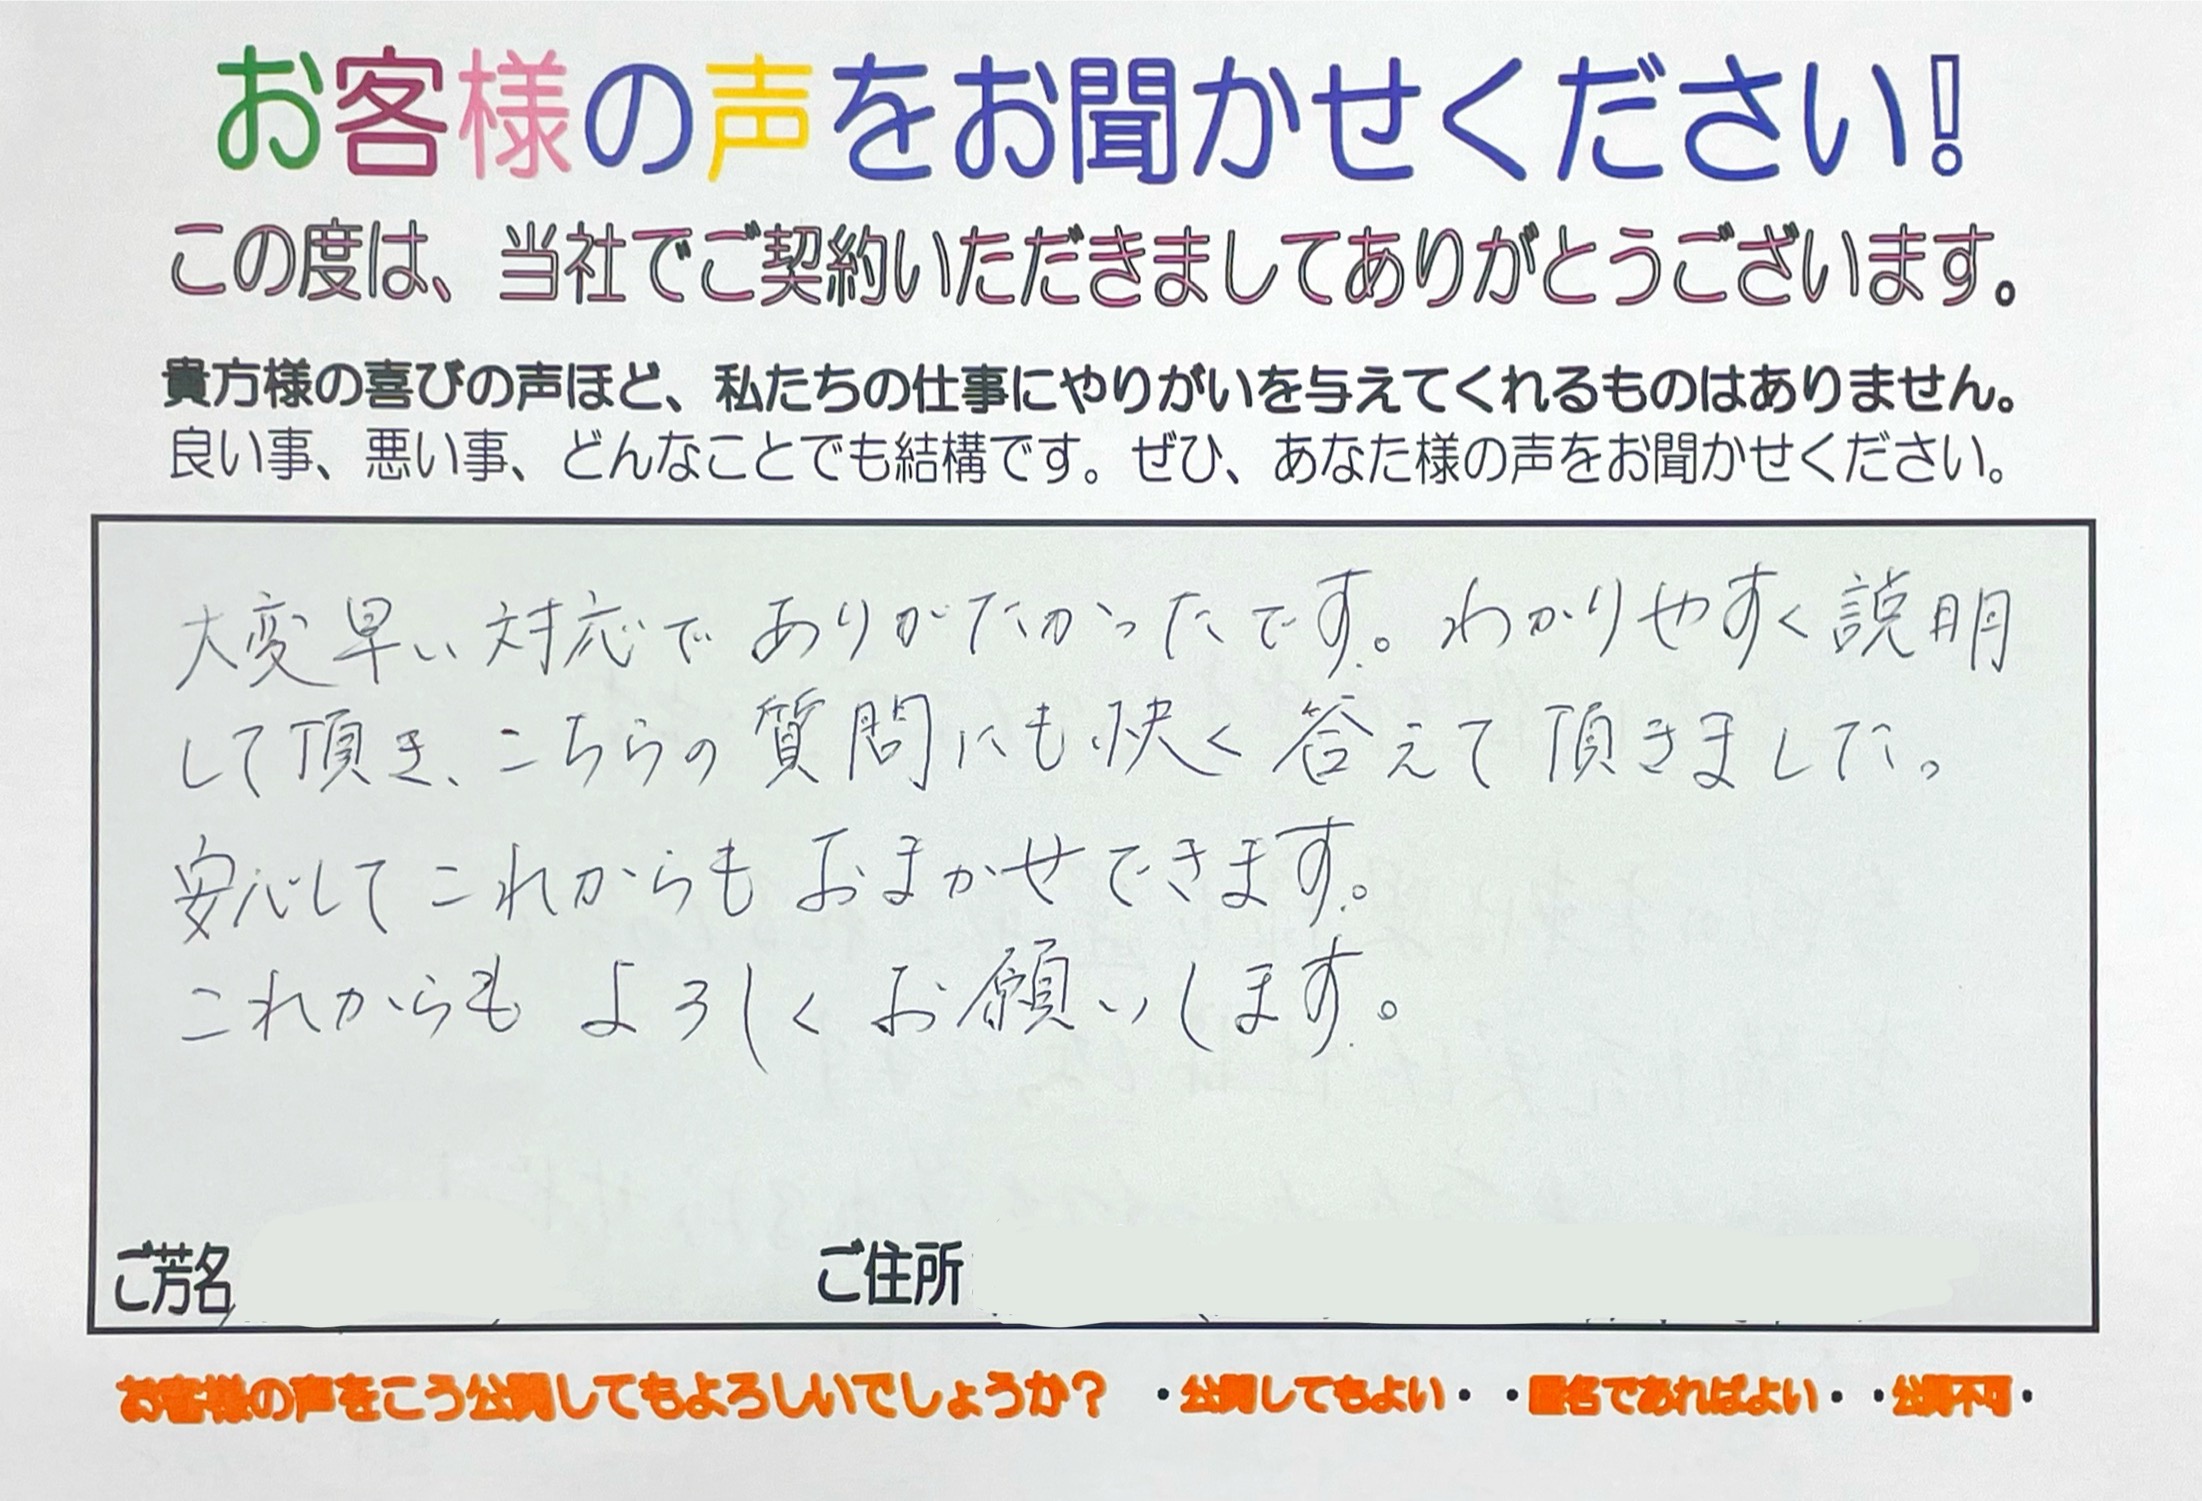 お客様の声をお聞かせください!
この度は、当社でご契約いただきましてありがとうございます。
貴方様の喜びの声ほど、私たちの仕事にやりがいを与えてくれるものはありません。
良い事、悪い事、どんなことでも結構です。ぜひ、あなた様の声をお聞かせください。
大変早い対応でありがたかったです。わかりやすく説明
して頂き、こちらの質問にも快く答えて頂きました。
安心してこれからもおまかせできます。
これからもよろしくお願いします。
ご芳名 ご住所
お客様の声をこう公開してもよろしいでしょうか? ・公開してもよい・ ・匿名であればよい・ ・公開不可・